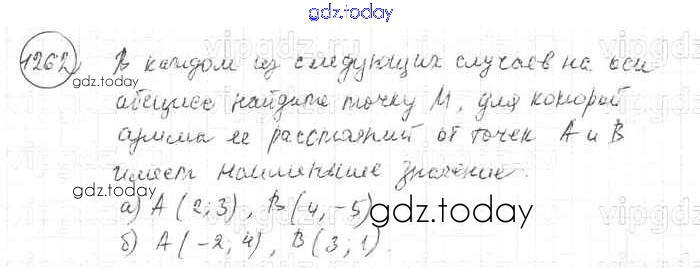 gdz.today
1262) В каждом из следующих случаев на оси
абсцисс найдите точку М, для которой
сумма ее расстояний от точек А и В
имеет наименьшее значение.
а) А (2; 3), В (4, -5)
б) А (-2; 4), В (3; 1).
gdz.today
gdz.today
gdz.today